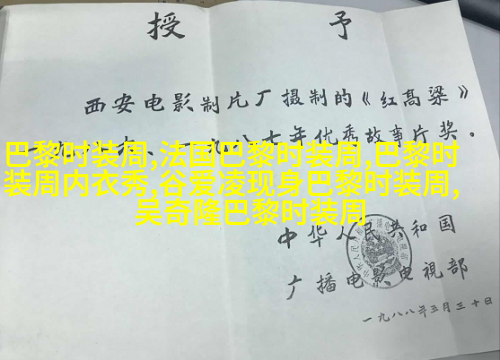 授予
西安电影制片厂摄制的《红高粱》
一九八六、一九八七年优秀故事片奖。
巴黎时装周,法国巴黎时装周,巴黎时
装周内衣秀,谷爱凌现身巴黎时装周,
吴奇隆巴黎时装周
中华人民共和国
广播电影电视部
一九八八年三月三十日